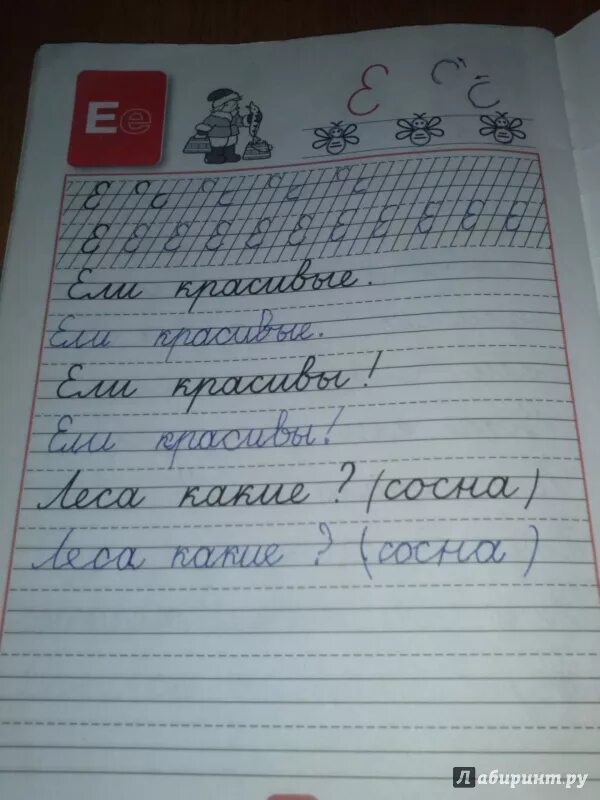 Ее
Е
Е
Е Е Е Е Е Е Е Е Е Е Е
Ели красивые.
Ели красивые.
Ели красивы!
Ели красивы!
Леса какие? (сосна)
Леса какие? (сосна)
Лабиринт.ру